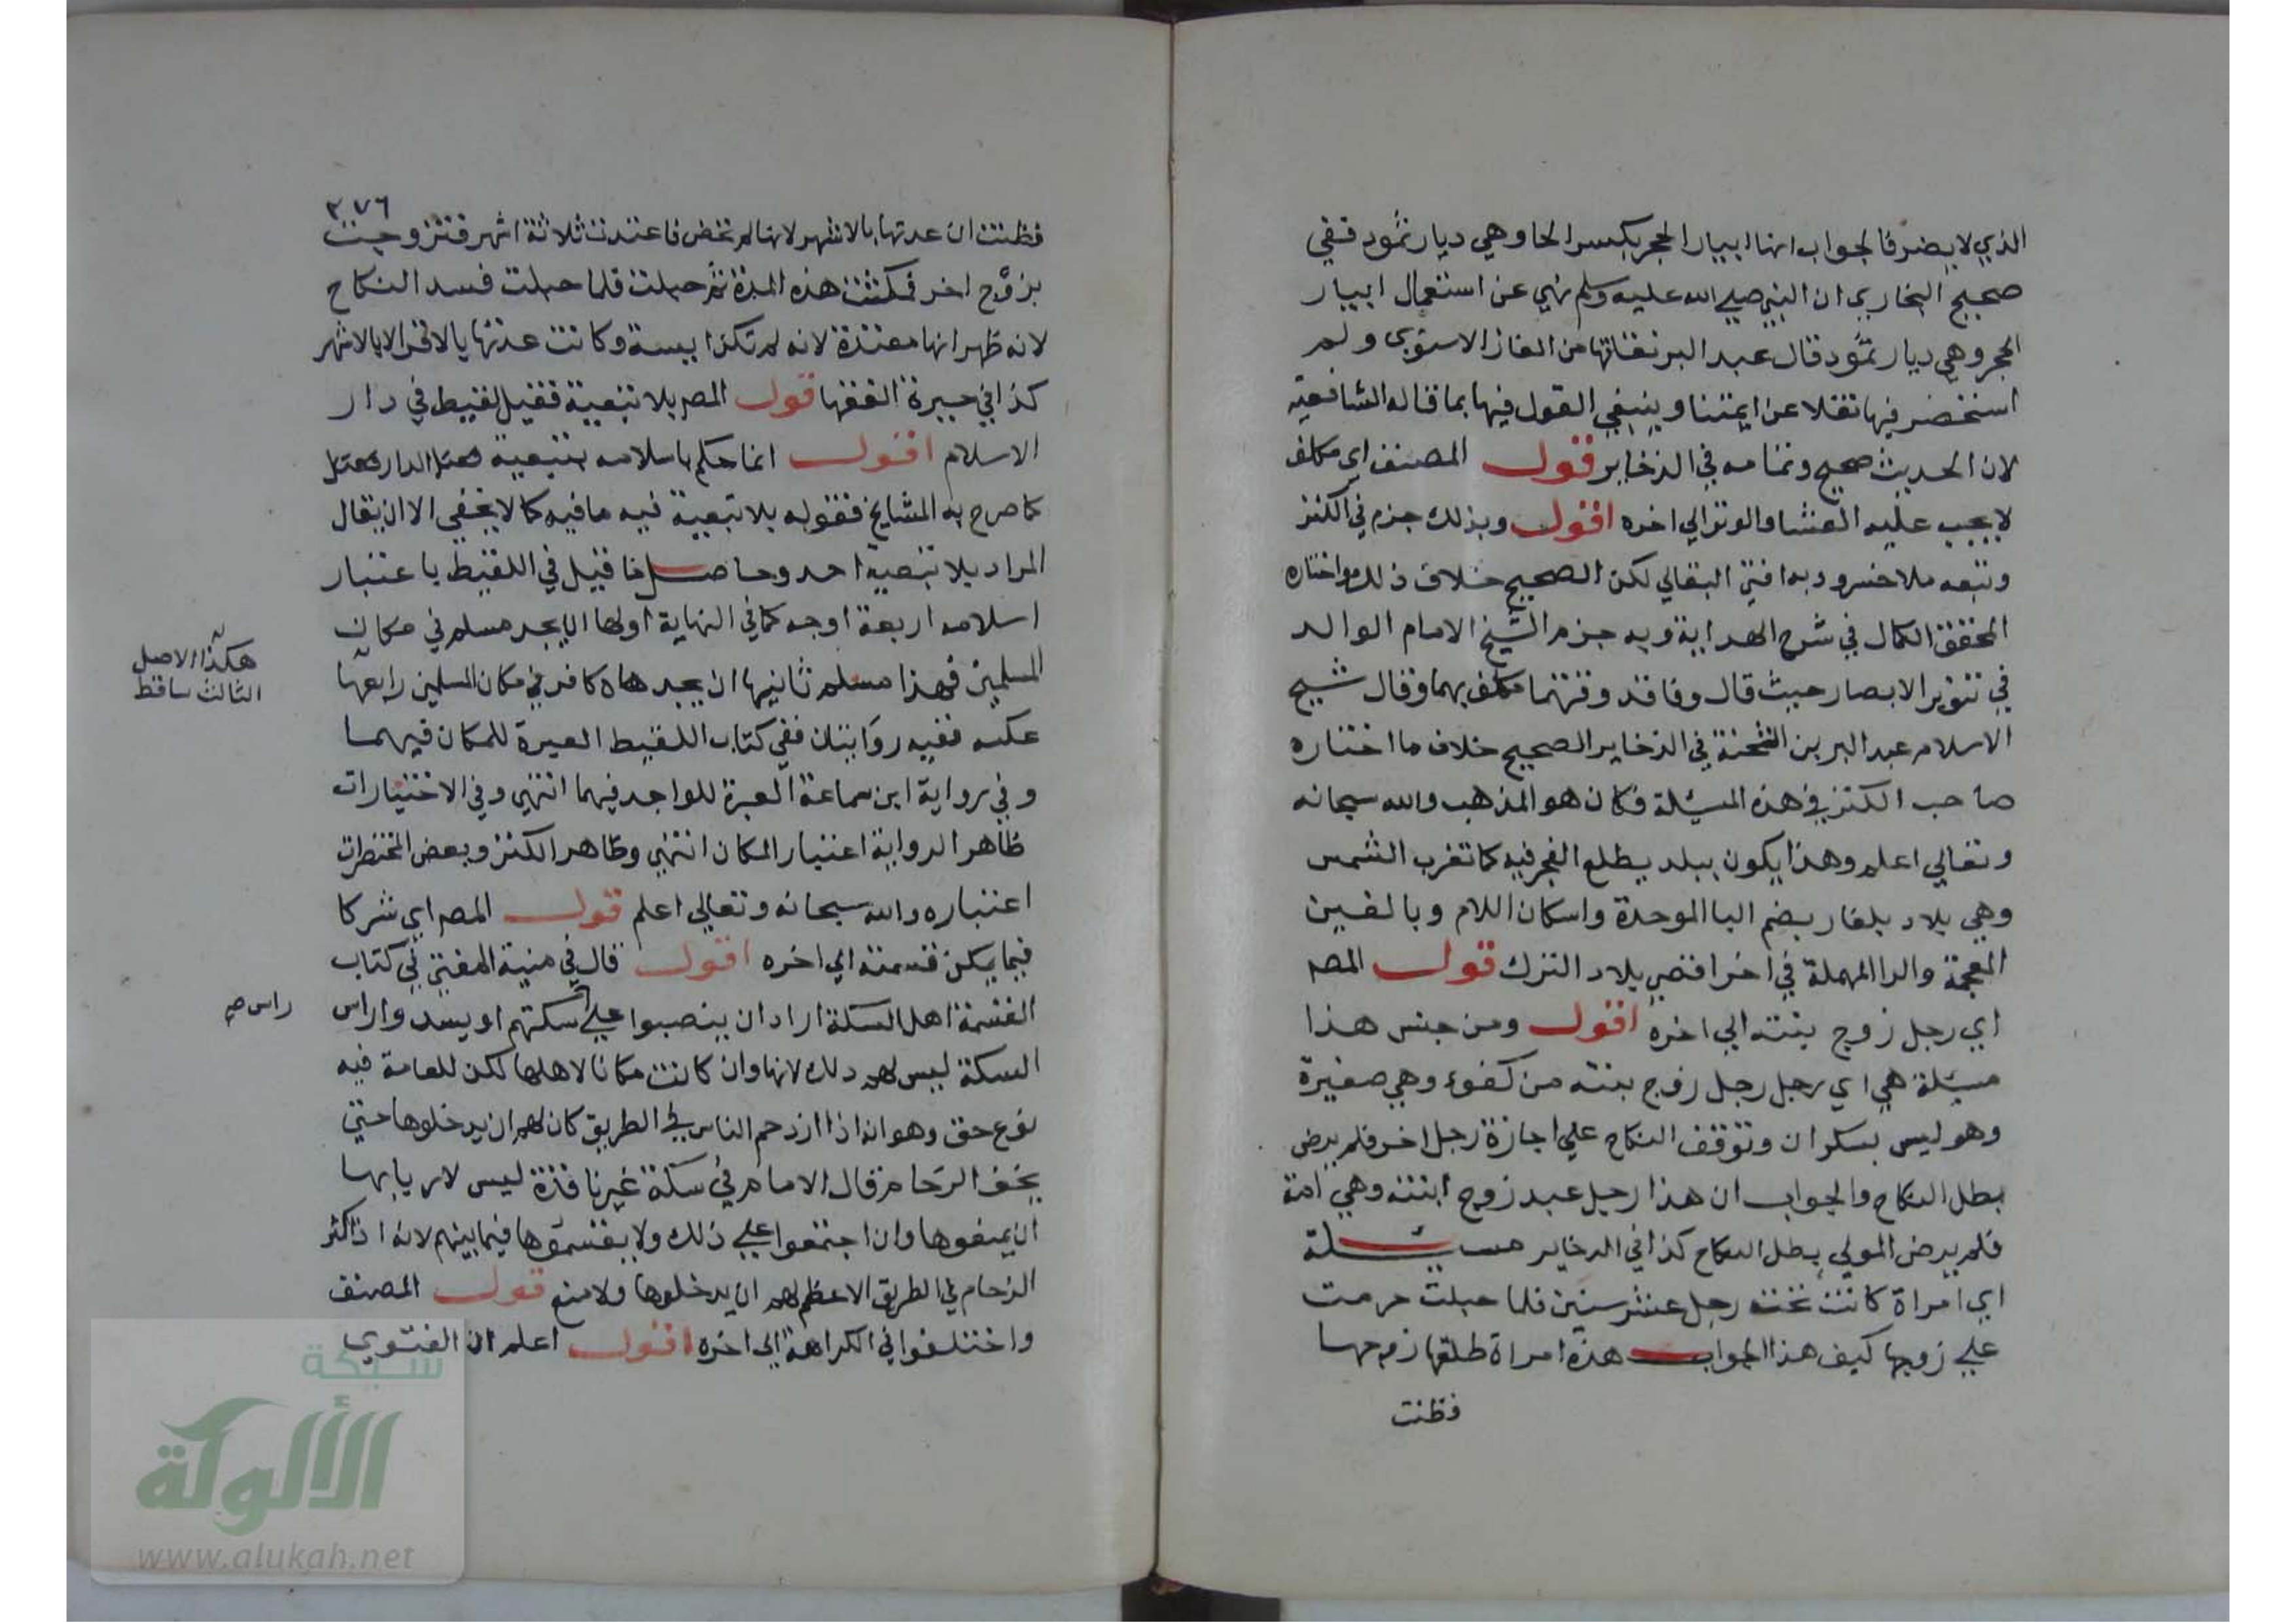 الذي لا يضر فالجواب انها ابيار الحجر بكسر الحا وهي ديار ثمود ففي
صحيح البخاري ان النبي صلى الله عليه وسلم نهي عن استعمال ابيار
الحجر وهي ديار ثمود قال عبد البر نقلتها من الغاز الاسنوي ولم
استحضر فيها نقلا عن ايمتنا وينبغي القول فيها بما قاله الشافعية
لان الحديث صحيح وتمامه في الذخاير قوله المصنف اي مكلف
لا يجب عليه العشا والوتر الي اخره اقول وبذلك جزم في الكنز
وتبعه ملا خسرو وبه افتي البقالي لكن الصحيح خلاف ذلك واختاره
المحقق الكمال في شرح الهداية وبه جزم الشيخ الامام الوالد
في تنوير الابصار حيث قال وفاقد وقتهما مكلف بهما وقال شيخ
الاسلام عبد البر بن الشحنة في الذخاير الصحيح خلاف ما اختاره
صاحب الكنز في هذه المسئلة فكان هو المذهب والله سبحانه
وتعالي اعلم وهذا يكون ببلد يطلع الفجر فيه كما تغرب الشمس
وهي بلاد بلغار بضم البا الموحدة واسكان اللام وبالغين
المعجمة والرا المهملة في اخرا قصي بلاد الترك قوله المصـ
اي رجل زوج بنته الي اخره اقول ومن جنس هذا
مسئلة هي اي رجل رجل زوج بنته من كفوء وهي صغيرة
وهو ليس بسكران وتوقف النكاح علي اجازة رجل اخر فلم يرض
بطل النكاح والجواب ان هذا رجل عبد زوج ابنته وهي امة
فلم يرض المولي بطل النكاح كذا في الذخاير مسئلة
اي امراة كانت تحت رجل عشر سنين فلما حبلت حرمت
علي زوجها كيف هذا الجواب هذه امراة طلقها زوجها
فظنت
٢٧٦
فظنت ان عدتها بالاشهر لانها لم تحض فاعتدت ثلاثة اشهر فتزوجت
بزوج اخر فمكثت هذه المدة ثم حبلت فلما حبلت فسد النكاح
لانه ظهر انها معتدة لانه لم تكن ايسة وكانت عدتها بالاقرا لا بالاشهر
كذا في حيرة الفقها قوله المصـ بلا تبعية فقيل لقيط في دار
الاسلام اقول انما حكم باسلامه بتبعية الدار
كما صرح به المشايخ فقوله بلا تبعية فيه ما فيه كما لا يخفي الا ان يقال
المراد بلا تبعية احد وحاصل ما قيل في اللقيط باعتبار
اسلامه اربعة اوجه كما في النهاية اولها ان يجد مسلم في مكان
المسلمين فهذا مسلم ثانيها ان يجد هاه كافر في مكان المسلمين رابعها
عكسه ففيه روايتان ففي كتاب اللقيط العبرة للمكان فيهما
وفي رواية ابن سماعة العبرة للواجد فيهما انتهي وفي الاختيارات
ظاهر الرواية اعتبار المكان انتهي وظاهر الكنز وبعض المختصرات
اعتباره والله سبحانه وتعالي اعلم قوله المصـ اي شركا
فيما يمكن قسمته الي اخره اقول قال في منية المفتي في كتاب
القسمة اهل السكة ارادان ينصبوا علي سكتهم او يسدوا راس
السكة ليس لهم ذلك لانها وان كانت مكانا لاهلها لكن للعامة فيه
نوع حق وهو انه اذا ازدحم الناس في الطريق كان لهم ان يدخلوها حتي
يخف الزحام قال الامام في سكة غير نافذة ليس لاربابها
ان يمنعوها وان اجتمعوا علي ذلك ولا يقتسموها فيما بينهم لانه اذا كثر
الزحام في الطريق الاعظم لهم ان يدخلوها ولا منع قوله المصنف
واختلفوا في الكراهة الي اخره اقول اعلم ان الفتوي
هكذا الاصل
الثالث ساقط
راس صح
شبكة
الألوكة
www.alukah.net